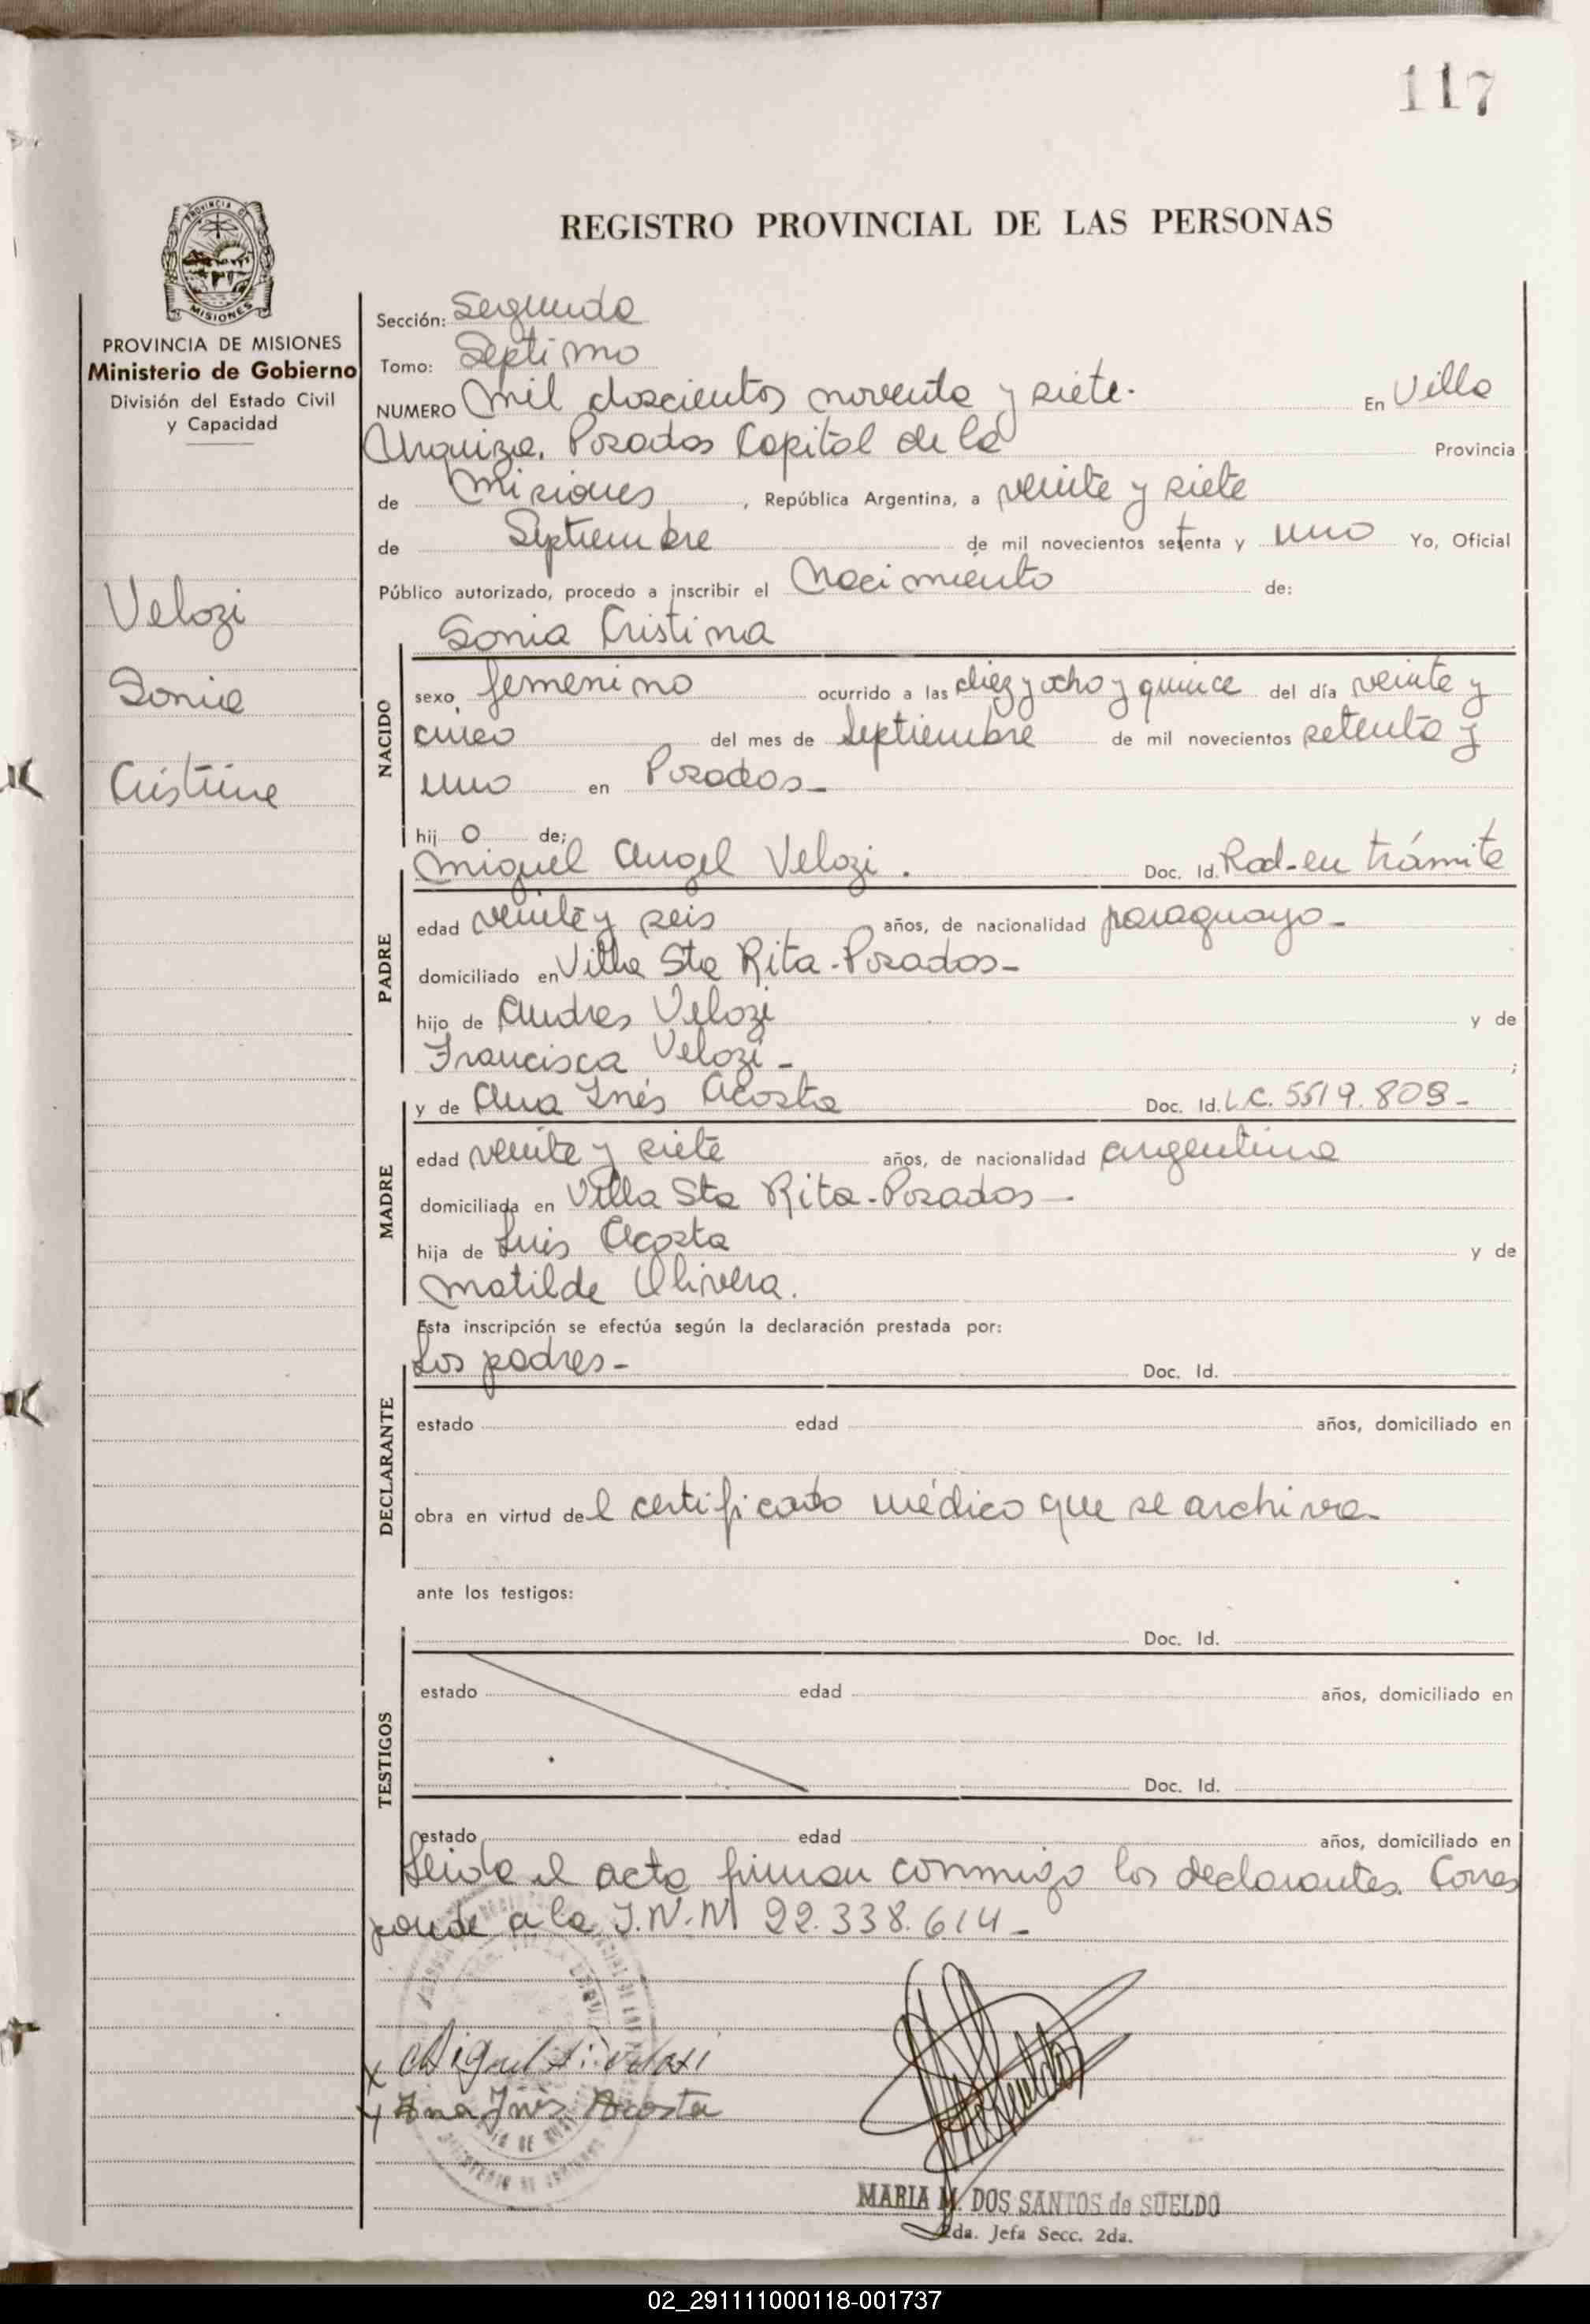 117
PROVINCIA DE
MISIONES
REGISTRO PROVINCIAL DE LAS PERSONAS
PROVINCIA DE MISIONES
Ministerio de Gobierno
División del Estado Civil
y Capacidad
Velozi
Sonia
Cristina
Sección: Segunda
Tomo: Septimo
NUMERO Mil doscientos noventa y siete. En Villa
Urquiza. Posadas Capital de la Provincia
de Misiones, República Argentina, a veinte y siete
de Septiembre de mil novecientos setenta y uno Yo, Oficial
Público autorizado, procedo a inscribir el Nacimiento de:
Sonia Cristina
NACIDO
sexo, femenino ocurrido a las diez y ocho y quince del día veinte y
cinco del mes de Septiembre de mil novecientos setenta y
uno en Posadas-
hij o de;
PADRE
Miguel Angel Velozi. Doc. Id. Rad-en trámite
edad veinte y seis años, de nacionalidad paraguayo-
domiciliado en Villa Sta Rita-Posadas-
hijo de Andres Velozi y de
Francisca Velozi- ;
MADRE
y de Ana Inés Acosta Doc. Id. L.C. 5519.808-
edad veinte y siete años, de nacionalidad argentina
domiciliada en Villa Sta Rita-Posadas-
hija de Luis Acosta y de
Matilde Olivera.
Esta inscripción se efectúa según la declaración prestada por:
DECLARANTE
Los padres- Doc. Id.
estado edad años, domiciliado en
obra en virtud del certificado médico que se archiva-
ante los testigos:
TESTIGOS
Doc. Id.
estado edad años, domiciliado en
Doc. Id.
estado edad años, domiciliado en
Leida el acta firman conmigo los declarantes. Corres
ponde a la I.N.M 22.338.614-
x Miguel A. Velozi
x Ana Inés Acosta
MARIA M. DOS SANTOS de SUELDO
2da. Jefa Secc. 2da.
02_291111000118-001737